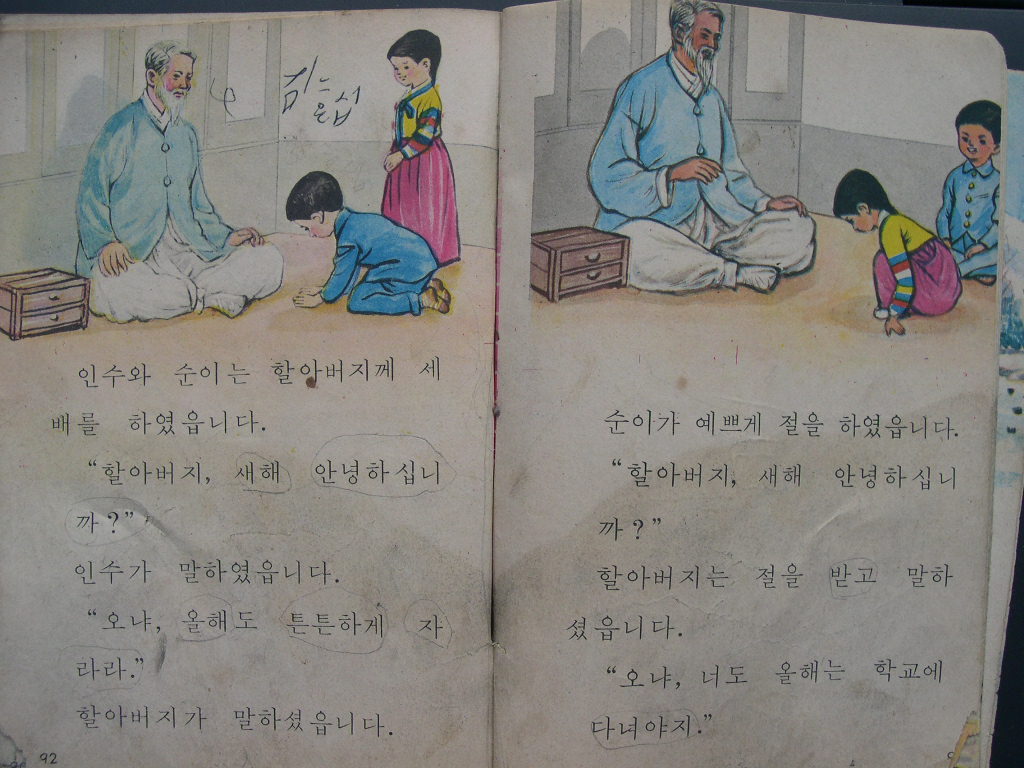 인수와 순이는 할아버지께 세
배를 하였읍니다.
“할아버지, 새해 안녕하십니
까?”
인수가 말하였읍니다.
“오냐, 올해도 튼튼하게 자
라라.”
할아버지가 말하셨읍니다.
92
순이가 예쁘게 절을 하였읍니다.
“할아버지, 새해 안녕하십니
까?”
할아버지는 절을 받고 말하
셨읍니다.
“오냐, 너도 올해는 학교에
다녀야지.”